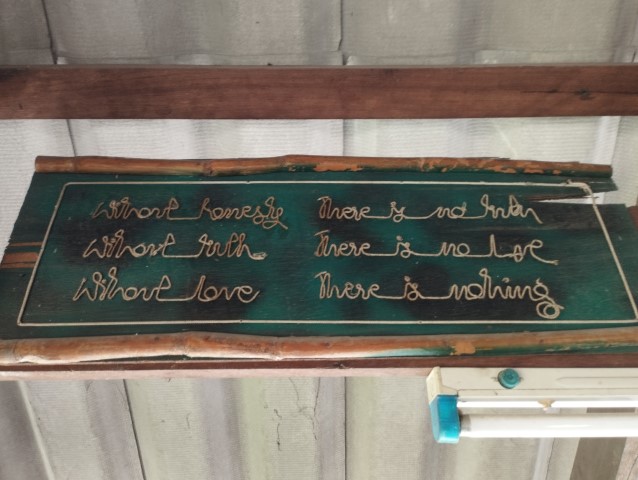 Without honesty There is no truth
Without truth There is no love
Without love There is nothing